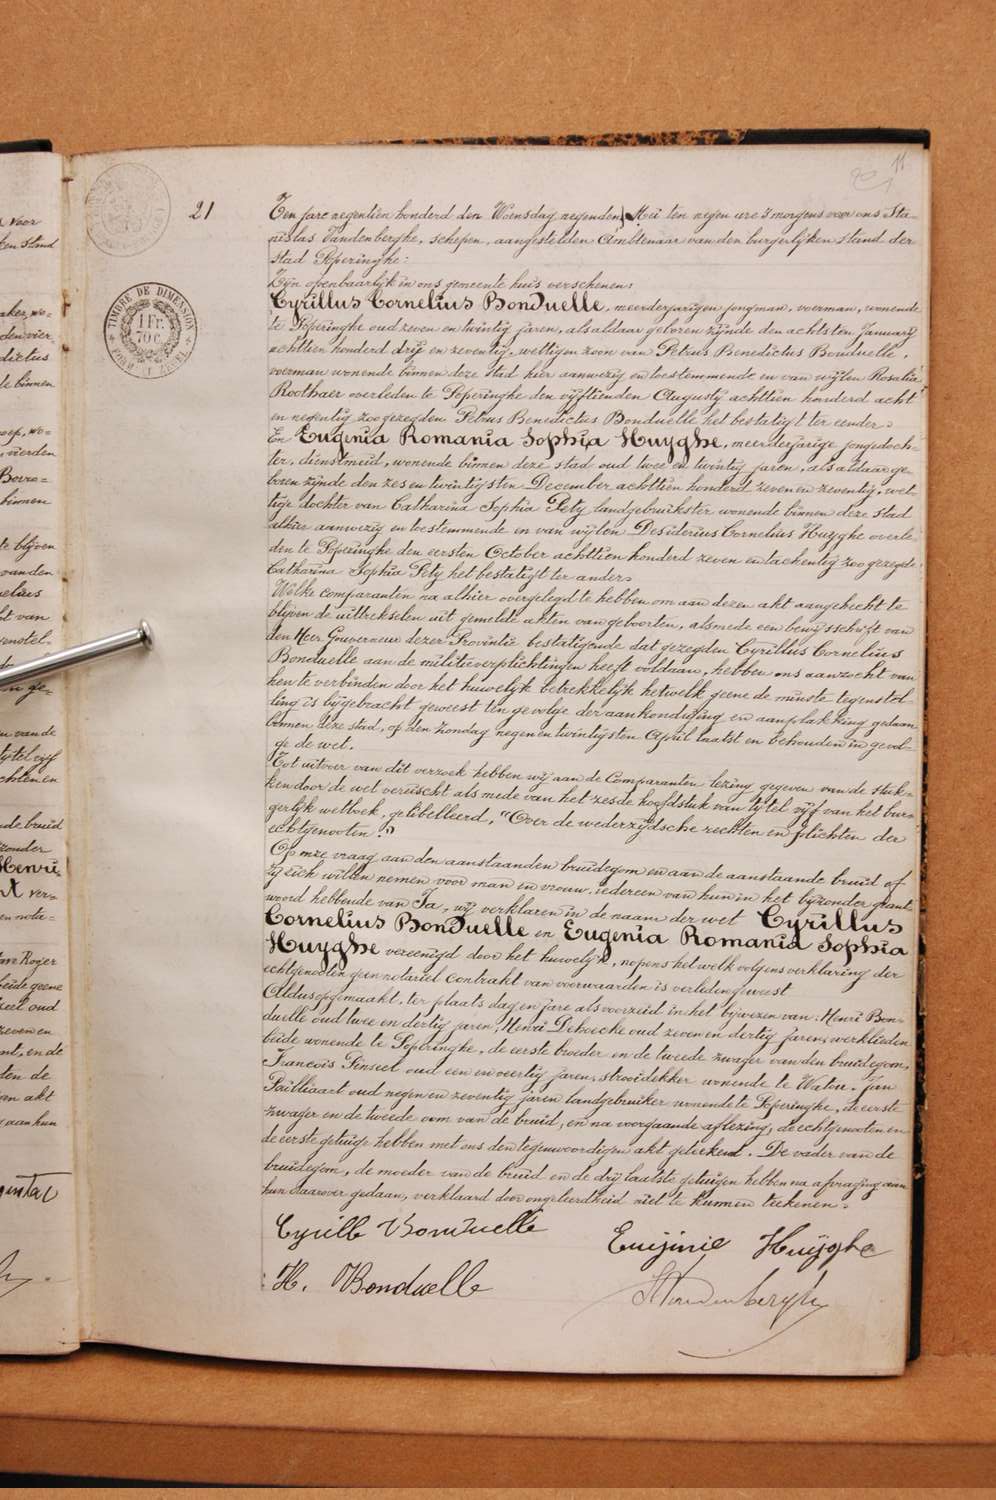 11
21
Ten jare negentien honderd den Woensdag negenden Mei ten negen ure 's morgens voor ons Sta-
nislas Vandenberghe, schepen, aangestelden Ambtenaar van den burgerlijken stand der
stad Poperinghe:
Zijn openbaarlijk in ons gemeente huis verschenen:
Cyrillus Cornelius Bonduelle, meerderjarigen jongman, voerman, wonende
te Poperinghe oud zeven en twintig jaren, als aldaar geboren zijnde den achtsten Januarij
achttien honderd drij en zeventig, wettigen zoon van Petrus Benedictus Bonduelle,
voerman wonende binnen deze stad hier aanwezig en toestemmende en van wijlen Rosalia
Roothaer overleden te Poperinghe den vijftienden Augusty achttien honderd acht
en negentig zoo gezegden Petrus Benedictus Bonduelle het bestatigt ter eender.
En Eugenia Romania Sophia Huyghe, meerderjarige jongedoch-
ter, dienstmeid, wonende binnen deze stad oud twee en twintig jaren, als aldaar ge-
boren zijnde den zes en twintigsten December achttien honderd zeven en zeventig, wet-
tige dochter van Catharina Sophia Pety landgebruikster wonende binnen deze stad
alhier aanwezig en toestemmende en van wijlen Desiderius Cornelius Huyghe overle-
den te Poperinghe den eersten October achttien honderd zeven en tachentig zoo gezegde
Catharina Sophia Pety het bestatigt ter ander.
Welke comparanten na alhier overgelegd te hebben om aan dezen akt aangehecht te
blijven de uittrekselen uit gemelde akten van geboorten, alsmede een bewijsschrift van
den Heer Gouverneur dezer Provintie bestatigende dat gezegden Cyrillus Cornelius
Bonduelle aan de militieverplichtingen heeft voldaan, hebben ons aanzocht van
hen te verbinden door het huwelijk betrekkelijk hetwelk geene de minste tegenstel-
ling is bijgebracht geweest ten gevolge der aankondiging en aanplakking gedaan
binnen deze stad, op den zondag negen en twintigsten April laatst en behouden in gevol-
ge de wet.
Tot uitvoer van dit verzoek hebben wij aan de Comparanten lezing gegeven van de stuk-
ken door de wet vereischt als mede van het zesde hoofdstuk van tytel vijf van het bur-
gerlijk wetboek, gelibelleerd, "Over de wederzijdsche rechten en plichten der
echtgenooten."
Op onze vraag aan den aanstaanden bruidegom en aan de aanstaande bruid of
zij zich willen nemen voor man en vrouw, iedereen van hun in het bijzonder geant-
woord hebbende van Ja, wij verklaren in de naam der wet Cyrillus
Cornelius Bonduelle en Eugenia Romania Sophia
Huyghe vereenigd door het huwelijk, nopens hetwelk volgens verklaring der
echtgenooten geen notariel contrakt van voorwaarden is verleden geweest
Aldus opgemaakt, ter plaats dag en jare als voorzeid in het bijwezen van: Henri Bon-
duelle oud twee en dertig jaren, Henri Deboecke oud zeven en dertig jaren, werklieden
beide wonende te Poperinghe, de eerste broeder en de tweede zwager van den bruidegom,
Francois Pinseel oud een en veertig jaren, strooidekker wonende te Watou, Jan
Pailliaart oud negen en zeventig jaren landgebruiker wonende te Poperinghe, de eerste
zwager en de tweede oom van de bruid, en na voorgaande aflezing, de echtgenooten en
de eerste getuige hebben met ons den tegenwoordigen akt geteekend. De vader van de
bruidegom, de moeder van de bruid en de drij laatste getuigen hebben na afvraging aan
hun daarover gedaan, verklaard door ongeleerdheid niet te kunnen teekenen.
Cyrill Bonduelle
Euijinie Huijghe
H. Bonduelle
St Vandenberghe
TIMBRE DE DIMENSION
1 Fr.
70 c.